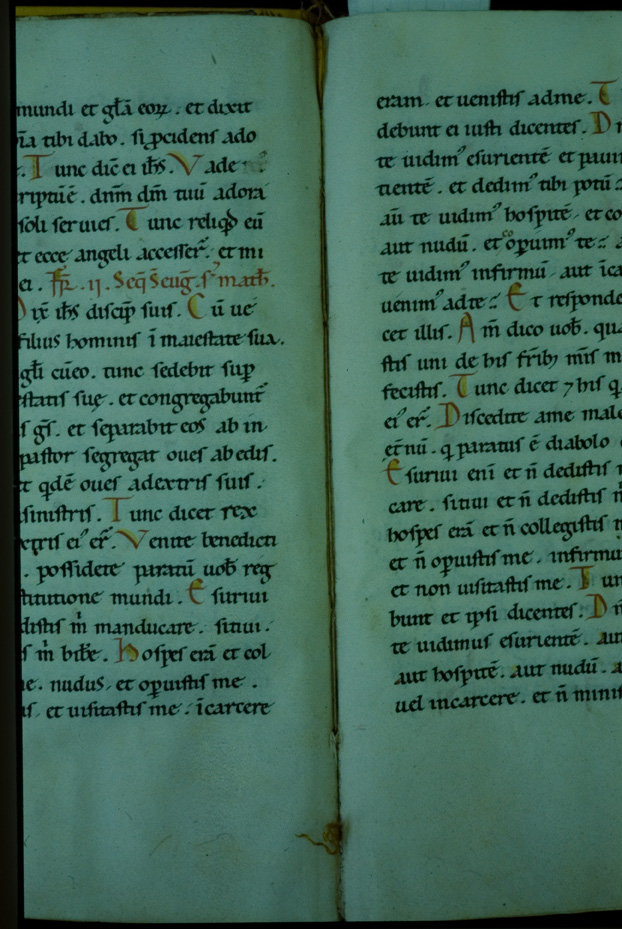 mundi et gl̄a eoꝝ . et dixit
tibi dabo . si ꝓcidens ado
. Tunc dic̄ ei ih̄s . Vade
dn̄m dm̄ tuū adora
soli seruies . Tunc reliqͥd eū
et ecce angeli accesser̄ . et mi
ei . Fr̄ . ii . Seq̄ S euḡ . s̄ math̄ .
ix̄ ih̄s discip̄ suis . Cū ue
filius hominis ī maiestate sua .
gl̄i cū eo . tunc sedebit sup̄
suę . et congregabunt̄
gn̄s . et separabit eos ab in
pastor segregat oues ab edis .
qͥdē oues adextris suis .
sinistris . Tunc dicet rex
ei᷒ er̄ . Venite benedicti
. possidete paratū uob̄ reg
mundi . Esuriui
m̄ manducare . sitiui .
m̄ bib̄e . Hospes erā et col
. nudus . et oꝑuistis me .
. et uisitastis me . ī carcere
eram . et uenistis adme . T
debunt ei iusti dicentes . D
te uidim᷒ esurientē et pauim
tientē . et dedim᷒ tibi potū :
aū te uidim᷒ hospitē . et co
aut nudū . et coopuim᷒ te :
te uidim᷒ infirmū . aut ī ca
uenim᷒ adte : Et responde
cet illis . Am̄ dico uob̄ . qua
stis uni de his fr̄ib᷒ m̄is m
fecistis . Tunc dicet ⁊ his q
ei᷒ er̄ . Discedite ame male
et̄nū . q̄ paratus ē diabolo
Esuriui enī et n̄ dedistis
care . sitiui et n̄ dedistis m̄
hospes erā et n̄ collegistis
et n̄ oꝑuistis me . infirmus
et non uisitastis me . Tun
bunt et ipsi dicentes . D
te uidimus esurientē . aut
aut hospitē . aut nudū . a
uel in carcere . et n̄ minis